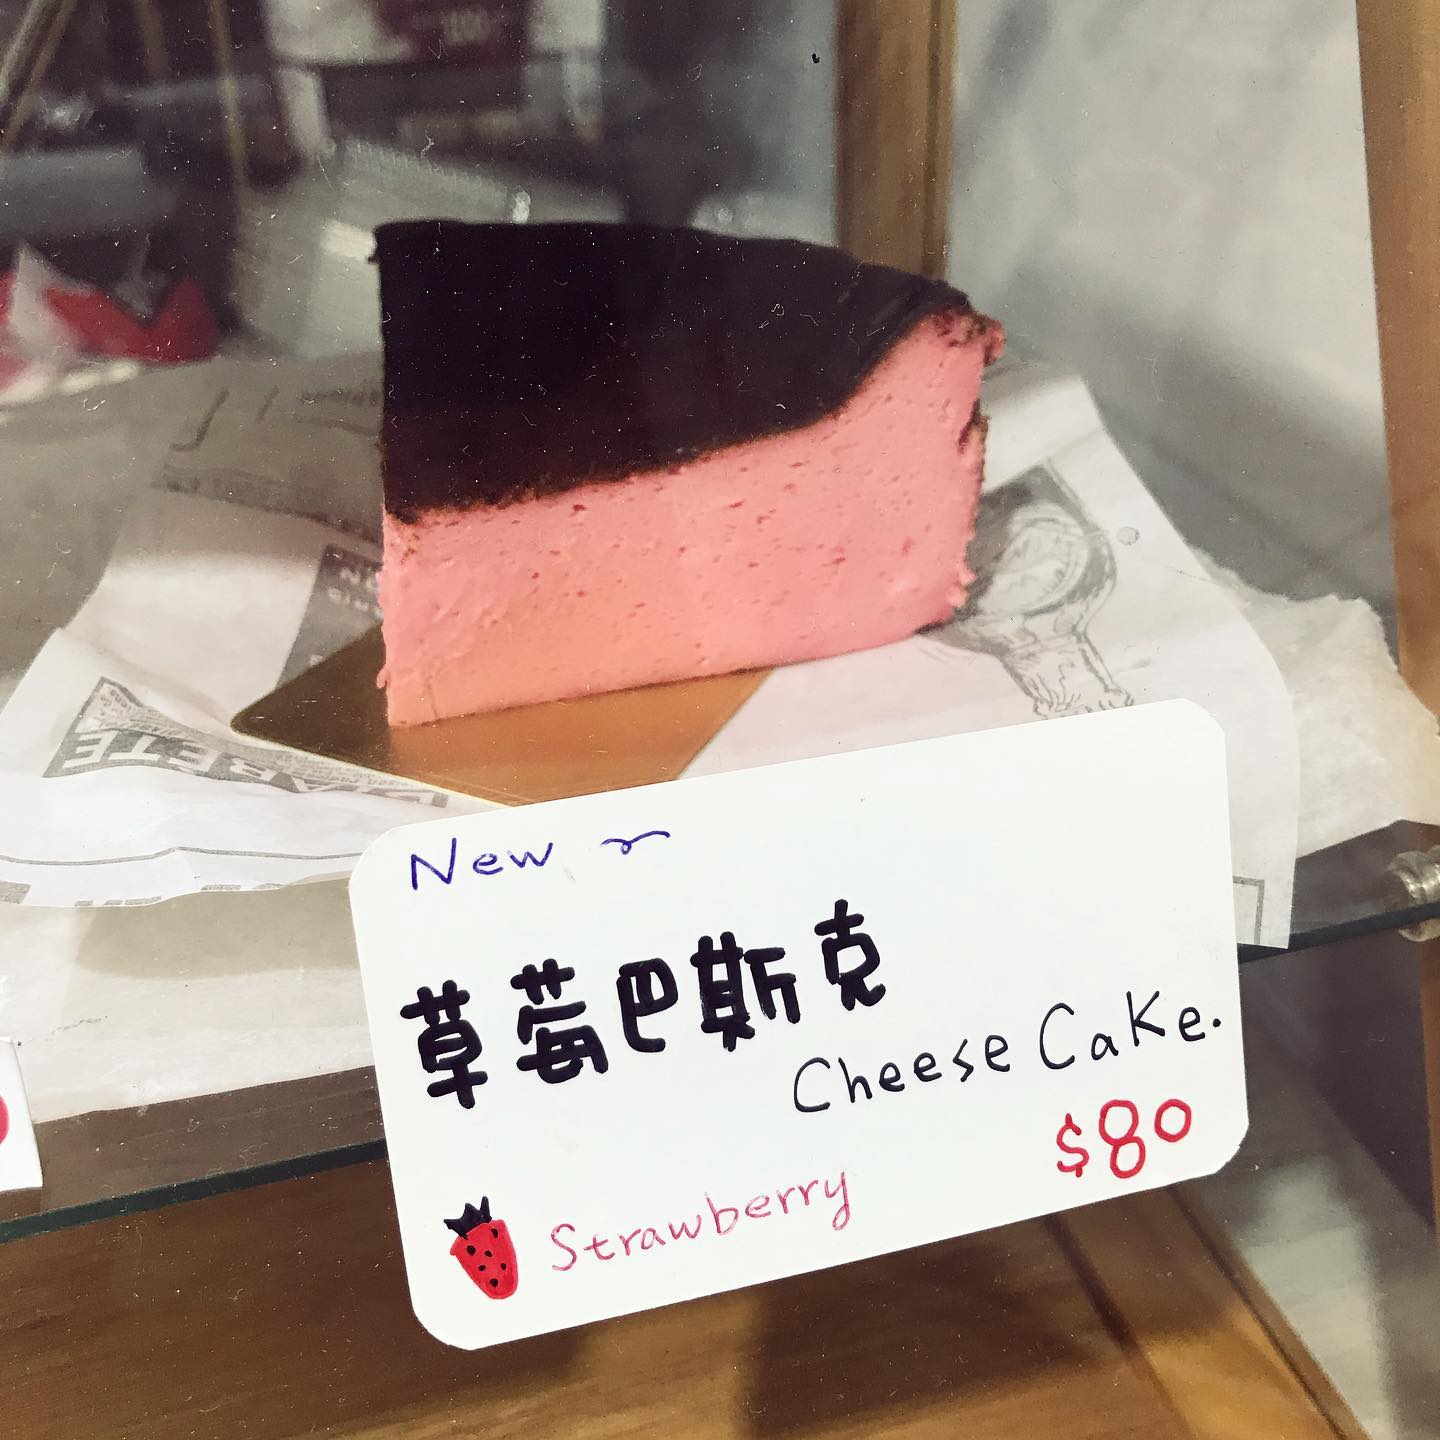 New
草莓巴斯克
Cheese Cake.
$80
Strawberry